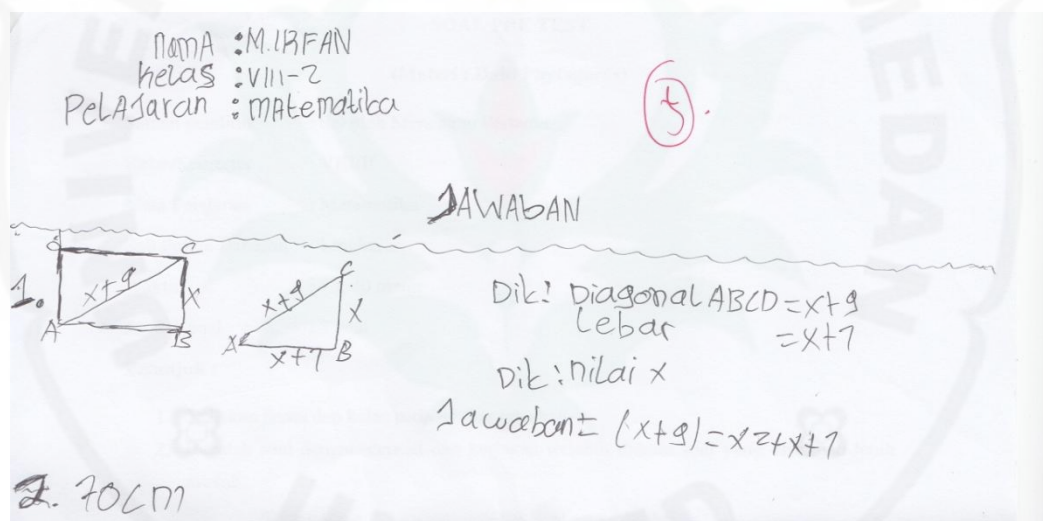 NamA : M.IRFAN
Kelas : VIII-2
PelAJaran : MAtematika
5.
JAWAbAN
1.
C
x+9
X
A
B
C
x+9
X
A
x+7
B
Dik: Diagonal ABCD = x+9
Lebar = x+7
Dik : nilai x
Jawaban = (x+9) = x2+x+7
2. 70cm
MEDAN